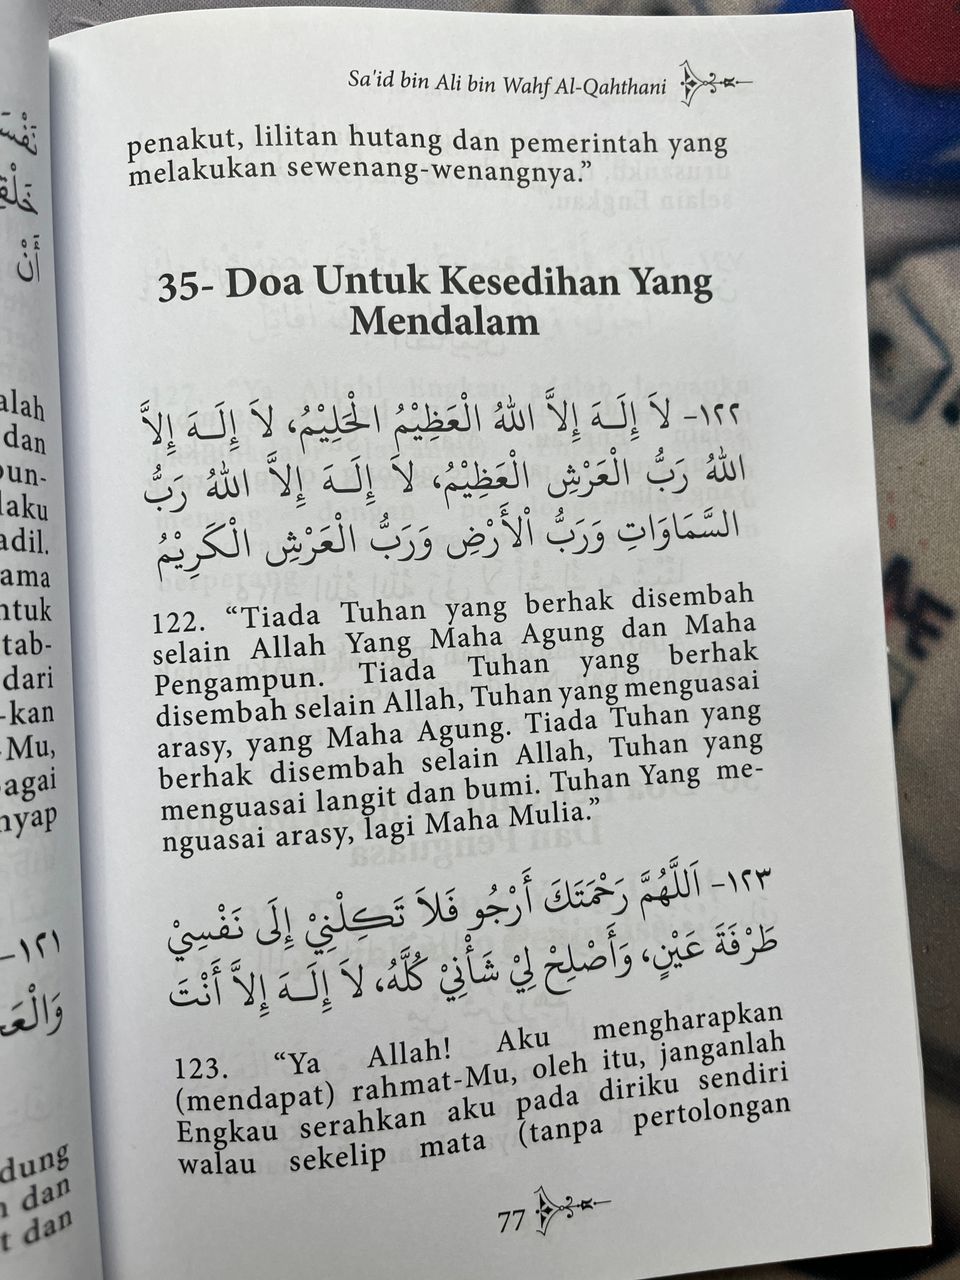 Sa'id bin Ali bin Wahf Al-Qahthani
penakut, lilitan hutang dan pemerintah yang
melakukan sewenang-wenangnya.”
35- Doa Untuk Kesedihan Yang
Mendalam
١٢٢- لاَ إِلَـهَ إِلاَّ اللهُ الْعَظِيْمُ الْحَلِيْمُ، لاَ إِلَـهَ إِلاَّ
اللهُ رَبُّ الْعَرْشِ الْعَظِيْمُ، لاَ إِلَـهَ إِلاَّ اللهُ رَبُّ
السَّمَاوَاتِ وَرَبُّ الْأَرْضِ وَرَبُّ الْعَرْشِ الْكَرِيْمُ
122. “Tiada Tuhan yang berhak disembah
selain Allah Yang Maha Agung dan Maha
Pengampun. Tiada Tuhan yang berhak
disembah selain Allah, Tuhan yang menguasai
arasy, yang Maha Agung. Tiada Tuhan yang
berhak disembah selain Allah, Tuhan yang
menguasai langit dan bumi. Tuhan Yang me-
nguasai arasy, lagi Maha Mulia.”
١٢٣- اَللَّهُمَّ رَحْمَتَكَ أَرْجُو فَلاَ تَكِلْنِيْ إِلَى نَفْسِيْ
طَرْفَةَ عَيْنٍ، وَأَصْلِحْ لِيْ شَأْنِيْ كُلَّهُ، لاَ إِلَـهَ إِلاَّ أَنْتَ
123. “Ya Allah! Aku mengharapkan
(mendapat) rahmat-Mu, oleh itu, janganlah
Engkau serahkan aku pada diriku sendiri
walau sekelip mata (tanpa pertolongan
77
alah
dan
pun-
laku
adil.
ama
ntuk
tab-
dari
-kan
-Mu,
agai
nyap
١٢١-
dung
n dan
t dan